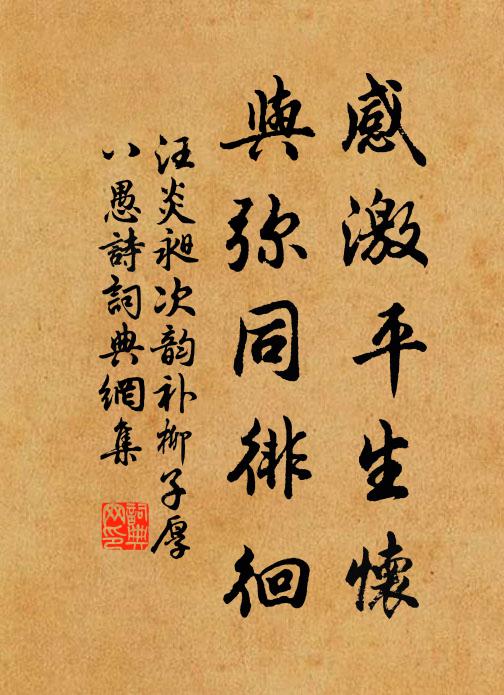 感激平生懷
與弥同徘徊
汪炎昶次韵补柳子厚
八愚詩詞典網集
詞典網印